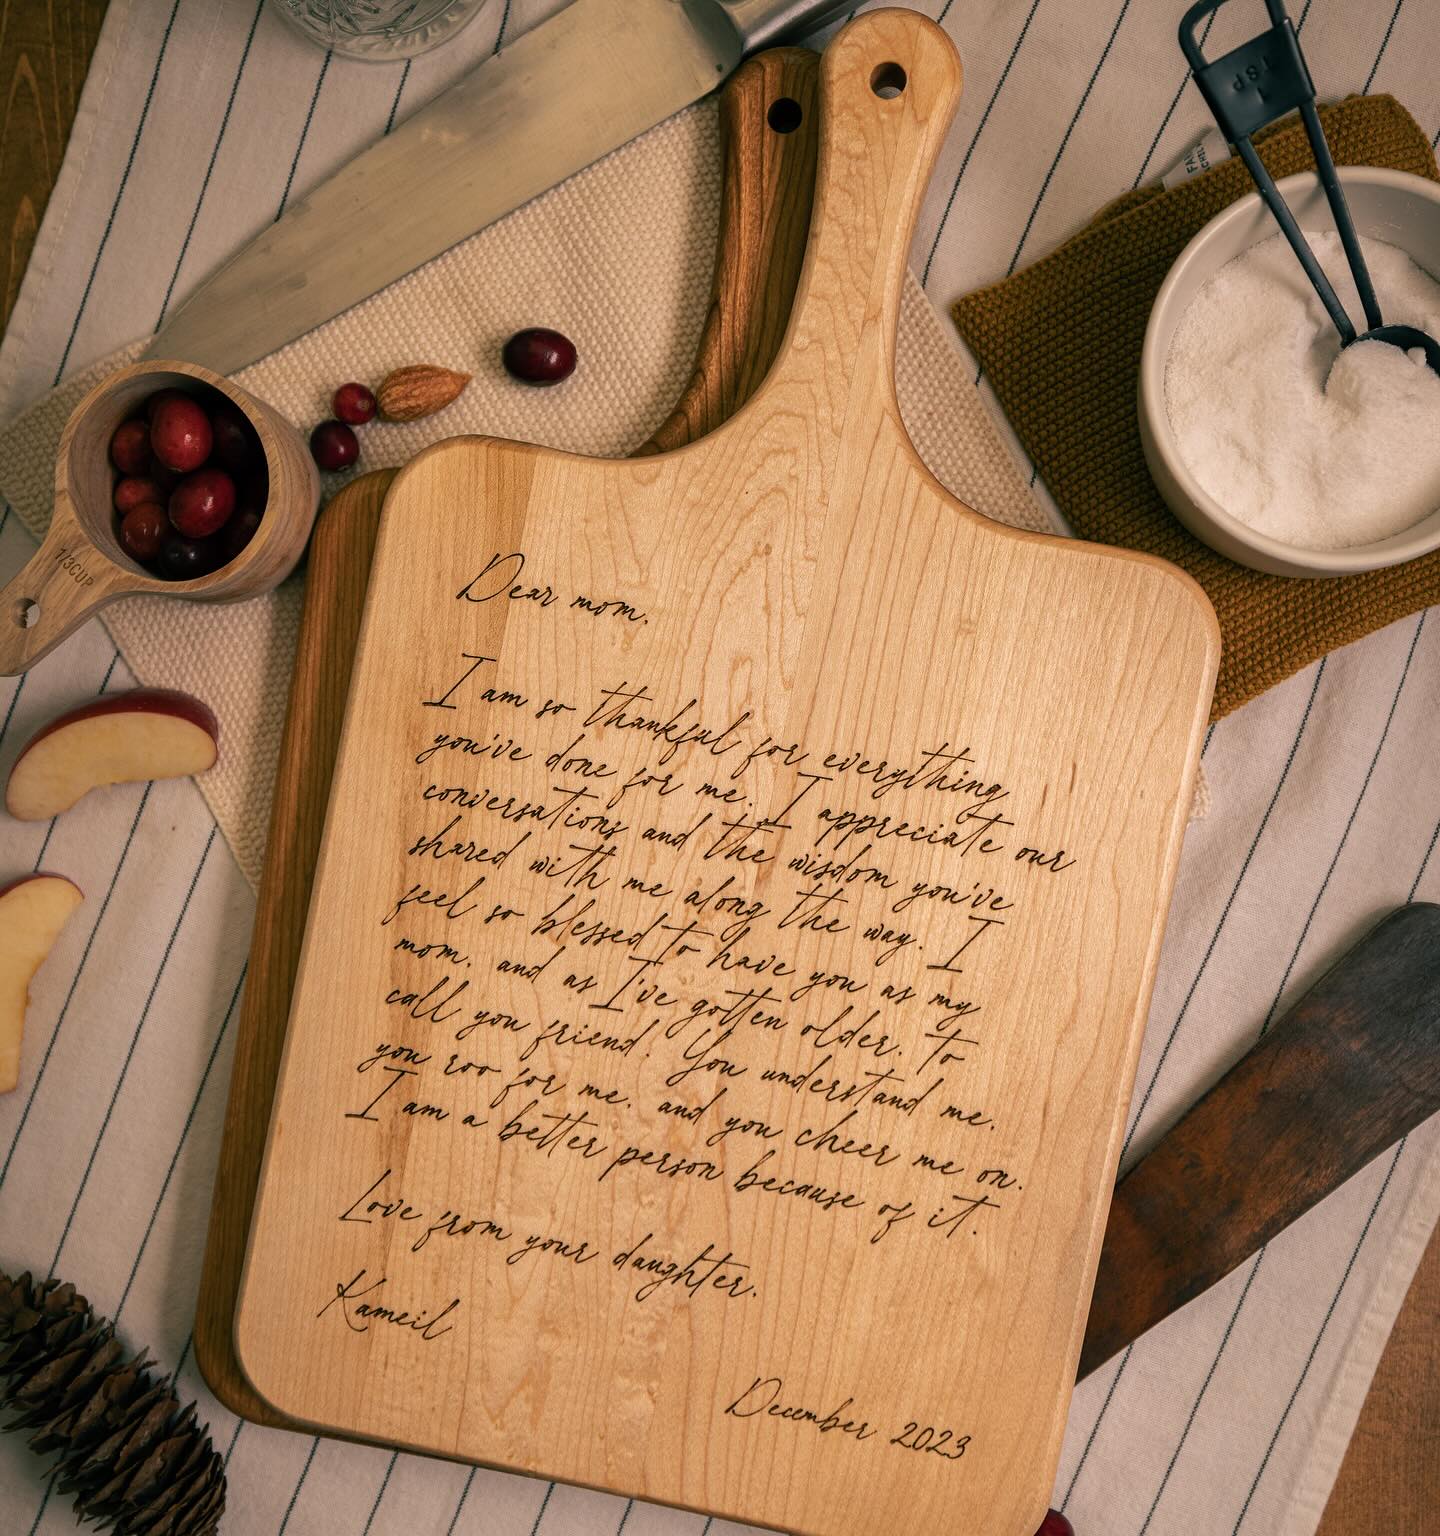 1 TSP
1/3CUP
Dear mom,
I am so thankful for everything
you've done for me. I appreciate our
conversations and the wisdom you've
shared with me along the way. I
feel so blessed to have you as my
mom, and as I've gotten older, to
call you friend. You understand me,
you roo for me, and you cheer me on.
I am a better person because of it.
Love from your daughter,
Kameil
December 2023